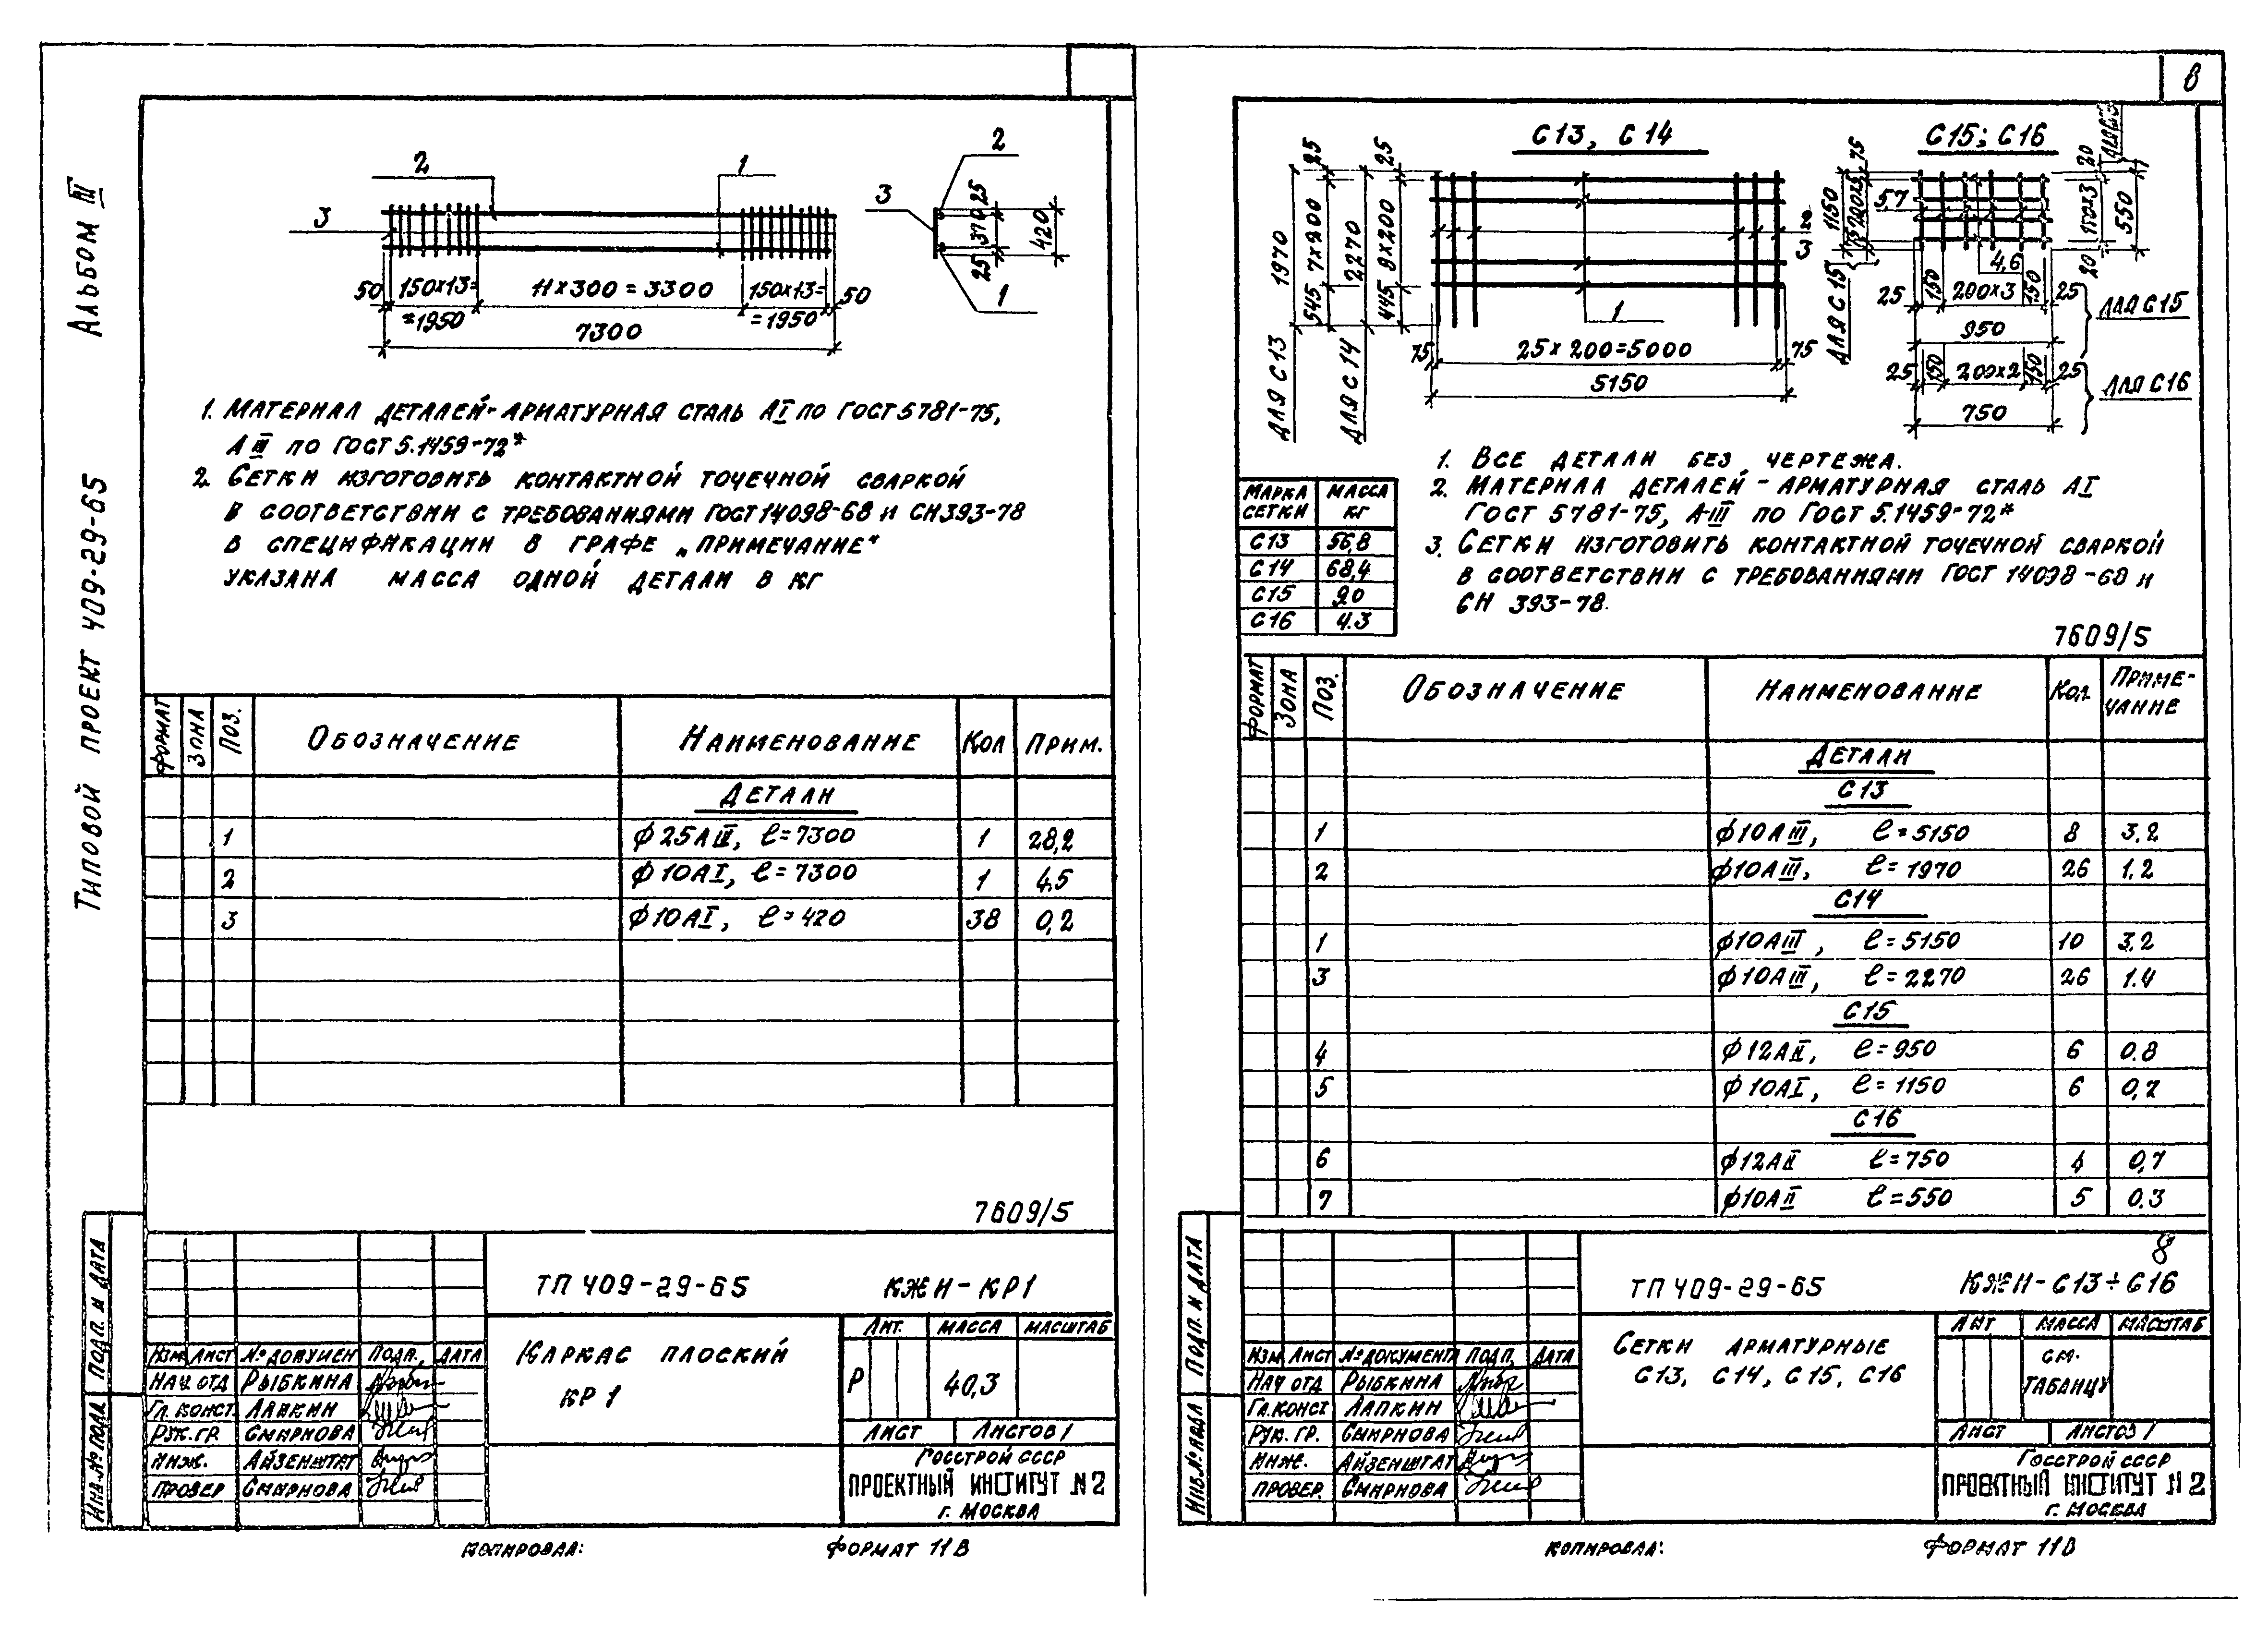 Альбом III
Типовой проект 409-29-65
2
1
3
50
150х13=
=1950
11х300=3300
150х13=
=1950
50
7300
2
3
1
25
370
25
420
1. Материал деталей-арматурная сталь АI по ГОСТ 5781-75,
АIII по ГОСТ 5.1459-72*
2. Сетки изготовить контактной точечной сваркой
в соответствии с требованиями ГОСТ 14098-68 и СН 393-78
В спецификации в графе „Примечание“
указана масса одной детали в кг
Формат Зона Поз. Обозначение Наименование Кол Прим.
Детали
1 ф25АIII, ℓ=7300 1 28,2
2 ф10АI, ℓ=7300 1 4.5
3 ф10АI, ℓ=420 38 0,2
7609/5
ТП 409-29-65 КЖН-КР1
Каркас плоский
КР1
Лит. Масса Масштаб
Р 40,3
Лист Листов 1
Госстрой СССР
Проектный институт №2
г. Москва
Изм Лист № докумен Подп. Дата
Нач. отд Рыбкина
Гл. конст. Лапкин
Рук. гр. Смирнова
Инж. Айзенштат
Провер Смирнова
Подп. и дата
Инв. № подл
Копировал:
Формат 11В
8
С13, С14
1970
25
7х200
545
2270
25
8х200
445
Для С13
Для С14
2
3
1
75
25х200=5000
75
5150
С15; С16
75
1150
200х5
75
Для С15
5,7
4,6
20
150х3
20
550
25
150
200х3
150
25
950
Для С15
25
150
200х2
150
25
750
Для С16
Марка сетки Масса кг
С13 56,8
С14 68,4
С15 9.0
С16 4.3
1. Все детали без чертежа.
2. Материал деталей - арматурная сталь АI
ГОСТ 5781-75, А-III по ГОСТ 5.1459-72*
3. Сетки изготовить контактной точечной сваркой
в соответствии с требованиями ГОСТ 14098-68 и
СН 393-78.
7609/5
Формат Зона Поз. Обозначение Наименование Кол. Примечание
Детали
С13
1 ф10АIII, ℓ=5150 8 3.2
2 ф10АIII, ℓ=1970 26 1.2
С14
1 ф10АIII, ℓ=5150 10 3.2
3 ф10АIII, ℓ=2270 26 1.4
С15
4 ф12АII, ℓ=950 6 0.8
5 ф10АI, ℓ=1150 6 0,7
С16
6 ф12АII ℓ=750 4 0,7
7 ф10АII ℓ=550 5 0.3
8
ТП 409-29-65 КЖН-С13÷С16
Сетки арматурные
С13, С14, С15, С16
Лит Масса Масштаб
см.
таблицу
Лист Листов 1
Госстрой СССР
Проектный институт №2
г. Москва
Изм Лист № документа Подп. Дата
Нач отд Рыбкина
Гл. конст Лапкин
Рук. гр. Смирнова
Инж. Айзенштат
Провер. Смирнова
Подп. и дата
Инв. № подл
Копировал:
Формат 11В